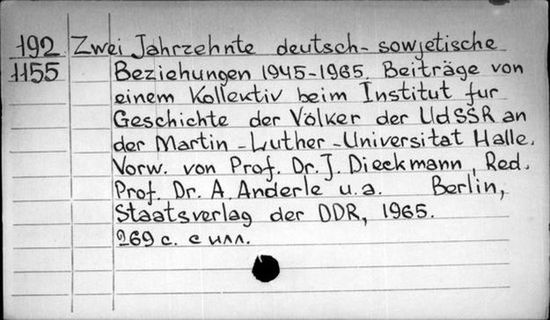 192 Zwei Jahrzehnte deutsch-sowjetische
1155 Beziehungen 1945-1965. Beiträge von
einem Kollektiv beim Institut fur
Geschichte der Völker der UdSSR an
der Martin-Luther-Universitat Halle.
Vorw. von Prof. Dr. J. Dieckmann, Red.
Prof. Dr. A. Anderle u.a. Berlin,
Staatsverlag der DDR, 1965.
269 с. с илл.